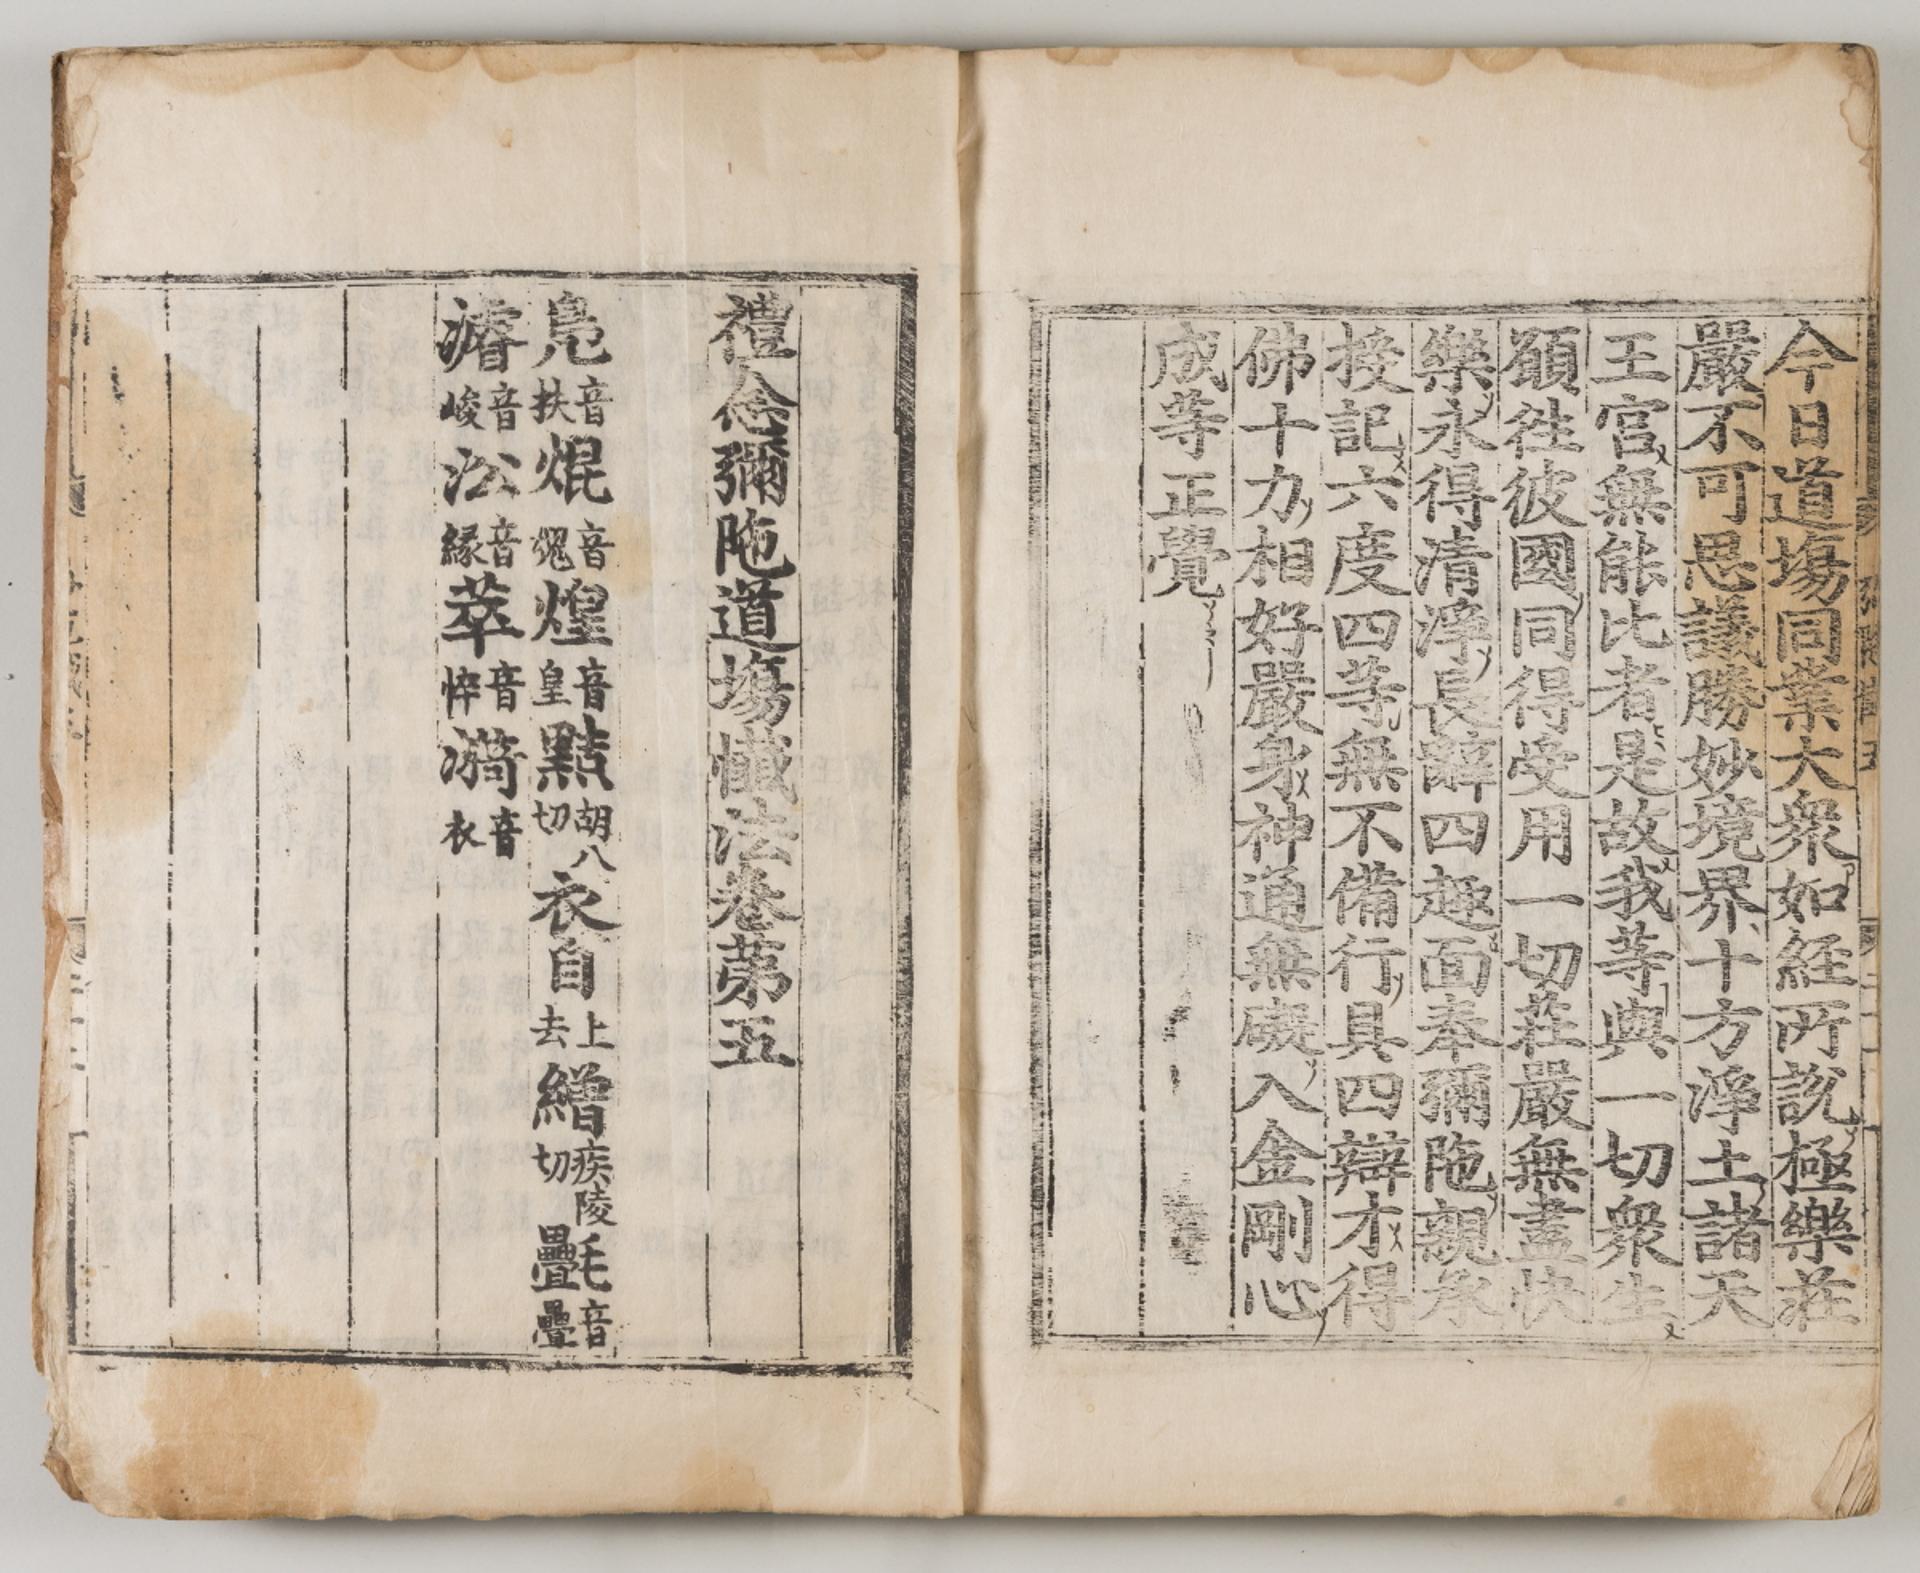 今日道場同業大衆如経所說極樂莊
嚴不可思議勝妙境界十方淨土諸天
王宮無能比者是故我等與一切衆生
願徃彼國同得受用一切莊嚴無盡快
樂永得清淨長辭四趣面奉彌陁親承
授記六度四等無不備行具四辯才得
佛十力相好嚴身神通無礙入金剛心
成等正覺
禮念彌陁道場懺法卷第五
凫音扶焜音䰟煌音皇黠胡八切衣自上去繒疾陵切氎音疊
濬音峻㳂音緣萃音悴漪音衣